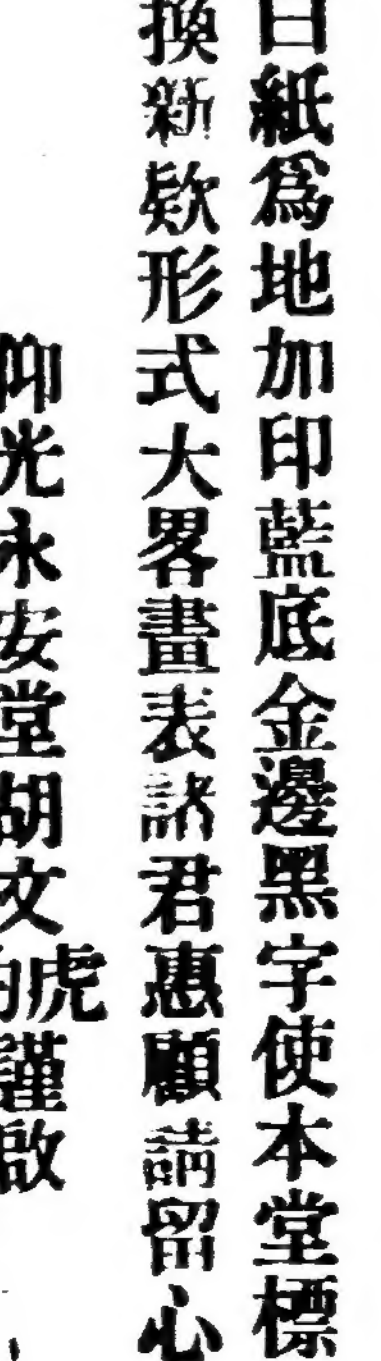 白紙爲地加印藍底金邊黑字使本堂標
換新欵形式大畧畫表諸君惠顧請留心
仰光永安堂胡文虎豹謹啟